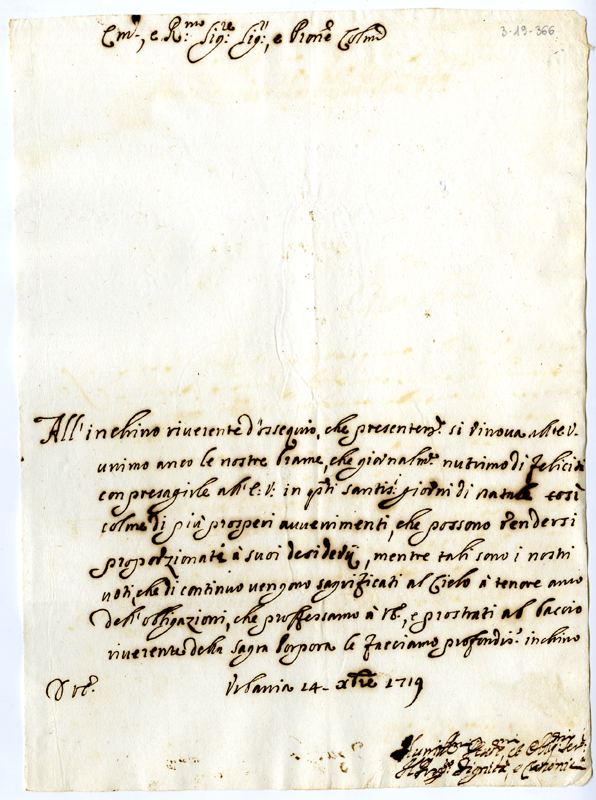 Em.., e R.mo Sig.re Sig.r, e Prone Colmo
3-19-366
All'inchino riverente d'ossequio, che presentem.e si rinova all'E. V.
unimo anco le nostre brame, che giornalm.e nutrimo di felicità
con presagirle all'E: V: in q.ti santis.i giorni di natale così
colme di più prosperi auuenimenti, che possono rendersi
proporzionate à suoi desiderij, mentre tali sono i nostri
uoti, che di continuo uengono sagrificati al Cielo à tenore anco
dell'obligazioni, che proffessamo à, e prostrati al baccio
riverente della sagra Porpora le facciamo profondis.o inchino
D. V. E.
Urbania 14 Xbre 1719
Dignità, e Canonici